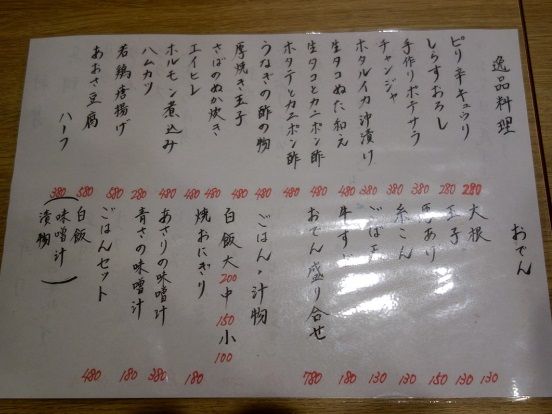 逸品料理
ピリ辛キュウリ 280
しらすおろし 280
手作りポテサラ 380
チャンジャ 380
ホタルイカ沖漬け 380
生タコぬた和え 480
生タコとカニポン酢 480
ホタテとカニポン酢 480
うなぎの酢の物 480
厚焼き玉子 480
さばのぬか炊き 480
エイヒレ 480
ホルモン煮込み 480
ハムカツ 280
若鶏唐揚げ 580
あおさ豆腐 580
ハーフ 380
おでん
大根 130
玉子 130
150
糸こん 130
ごぼ天 130
牛すじ 180
おでん盛り合せ 780
ごはん・汁物
白飯 大 200 中 150 小 100
焼おにぎり 180
あさりの味噌汁 380
青さの味噌汁 180
ごはんセット 480
(白飯
味噌汁
漬物)